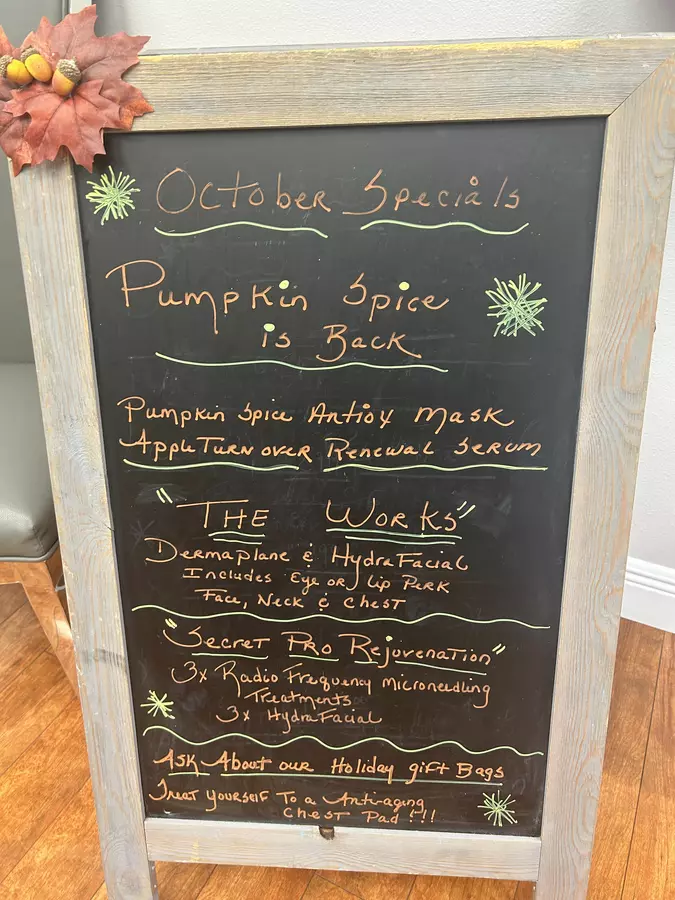 October Specials
Pumpkin Spice
is Back
Pumpkin Spice Antiox Mask
Apple Turnover Renewal Serum
"THE WORKS"
Dermaplane & HydraFacial
Includes Eye or Lip Perk
Face, Neck & Chest
"Secret Pro Rejuvenation"
3x Radio Frequency Microneedling
Treatments
3x HydraFacial
Ask About our Holiday gift Bags
Treat Yourself To a Anti-aging
Chest Pad !!!